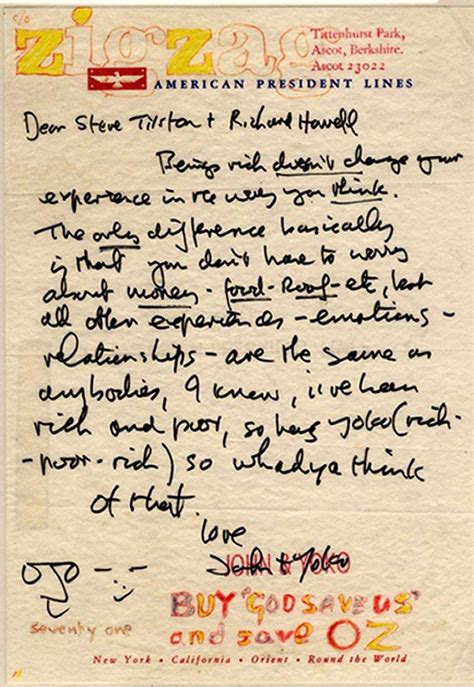 c/o
zigzag
Tittenhurst Park,
Ascot, Berkshire.
Ascot 23022
AMERICAN PRESIDENT LINES
Dear Steve Tilston + Richard Howell
Being rich doesn't change your
experience in the way you think.
The only difference basically
is that you don't have to worry
about money - food - Roof - etc, but
all other experiences - emotions -
relationships - are the same as
anybodies, I know, i've been
rich and poor, so has yoko (rich-
-poor-rich) so whadya think
of that.
love
John + Yoko
JOHN & YOKO
BUY "GOD SAVE US"
and save OZ
seventy one
New York • California • Orient • Round the World